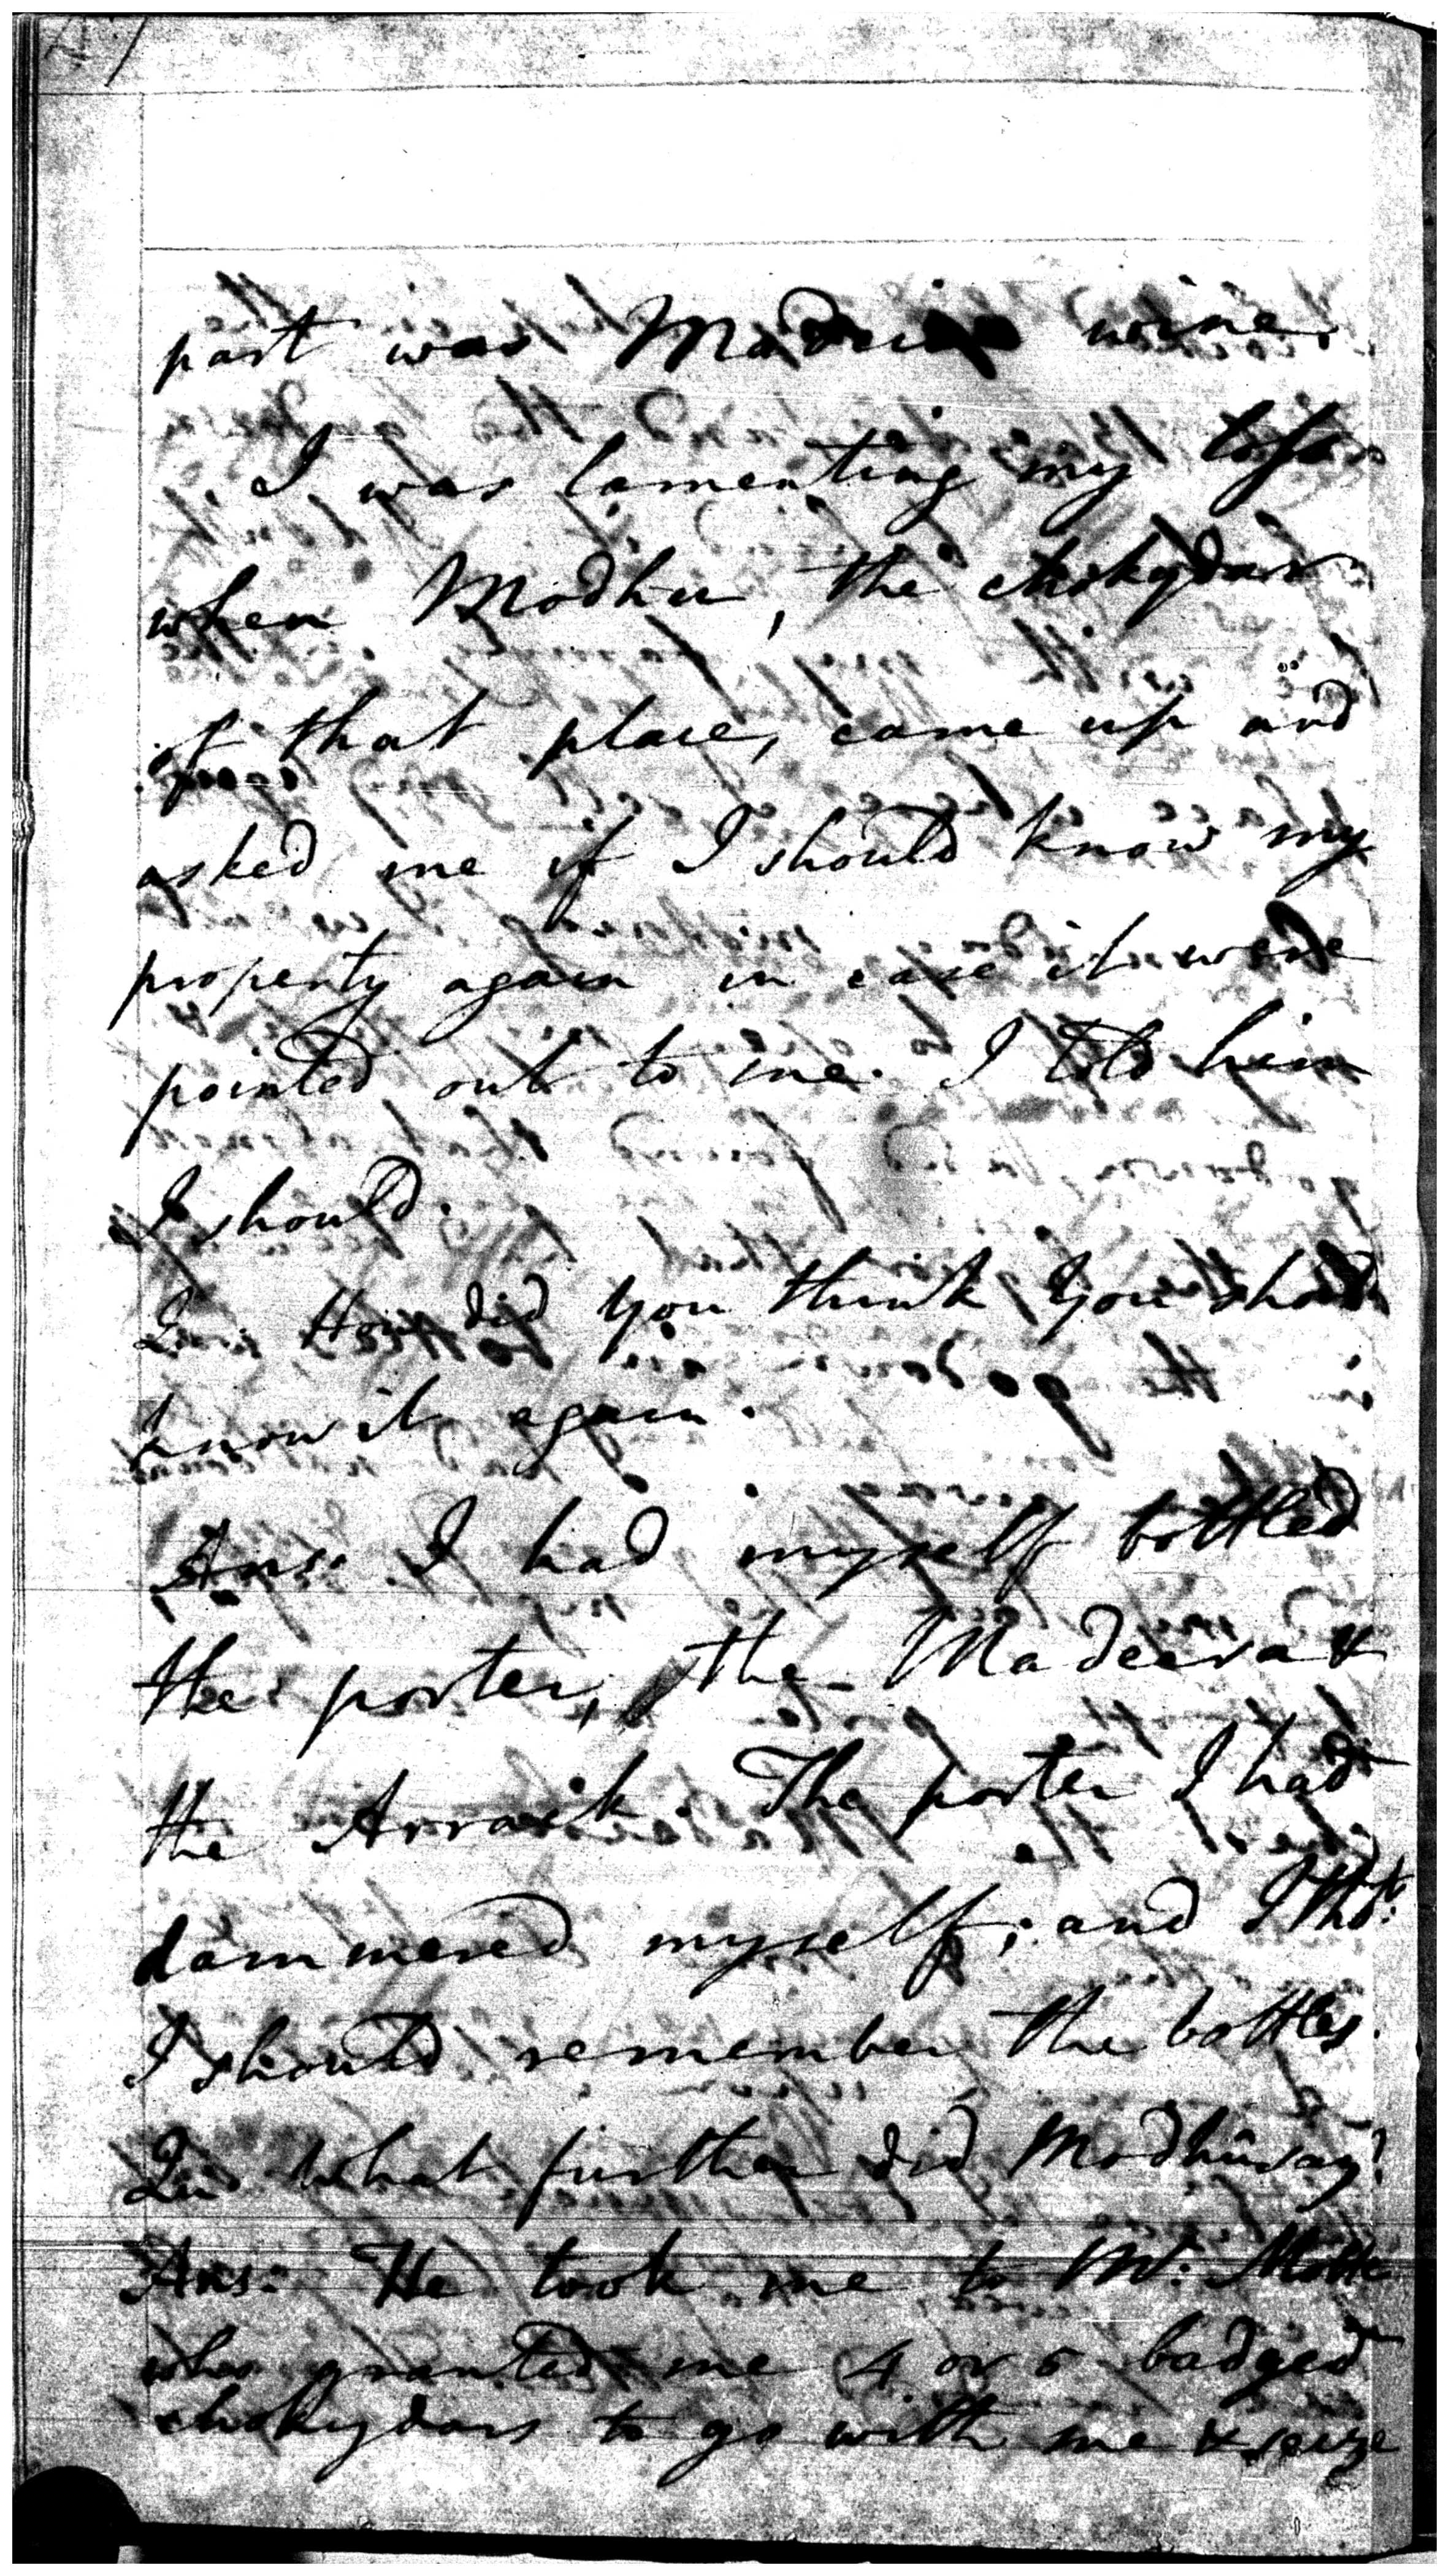 part was Madeira wine.
I was lamenting my loss
when Modhu, the chokydar
of that place, came up and
asked me if I should know my
property again in case it were
pointed out to me. I told him
I should.
Qu: How did you think you should
know it again.
Ans: I had myself bottled
the porter, the Madeera &
the Arrack. The porter I had
dammered myself; and I tho't:
I should remember the bottles.
Qu: What further did Modhû say?
Ans: He took me to Mr: Motte
who granted me 4 or 5 badged
chokydars to go with me & seize